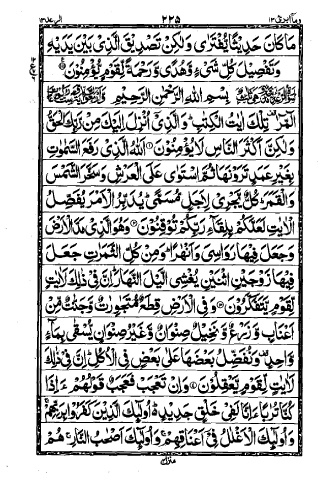 وما ابرئ ١٣ ٢٢٥ الرعد ١٣
مَا كَانَ حَدِيْثًا يُّفْتَرٰى وَلٰكِنْ تَصْدِيْقَ الَّذِىْ بَيْنَ يَدَيْهِ
وَتَفْصِيْلَ كُلِّ شَىْءٍ وَّهُدًى وَّرَحْمَةً لِّقَوْمٍ يُّؤْمِنُوْنَ
بِسْمِ اللهِ الرَّحْمٰنِ الرَّحِيْمِ
الٓمّٓرٰ تِلْكَ اٰيٰتُ الْكِتٰبِ وَالَّذِىْٓ اُنْزِلَ اِلَيْكَ مِنْ رَّبِّكَ الْحَقُّ
وَلٰكِنَّ اَكْثَرَ النَّاسِ لَا يُؤْمِنُوْنَ اَللهُ الَّذِىْ رَفَعَ السَّمٰوٰتِ
بِغَيْرِ عَمَدٍ تَرَوْنَهَا ثُمَّ اسْتَوٰى عَلَى الْعَرْشِ وَسَخَّرَ الشَّمْسَ
وَالْقَمَرَ كُلٌّ يَّجْرِىْ لِاَجَلٍ مُّسَمًّى يُدَبِّرُ الْاَمْرَ يُفَصِّلُ
الْاٰيٰتِ لَعَلَّكُمْ بِلِقَآءِ رَبِّكُمْ تُوْقِنُوْنَ وَهُوَ الَّذِىْ مَدَّ الْاَرْضَ
وَجَعَلَ فِيْهَا رَوَاسِىَ وَاَنْهٰرًا وَمِنْ كُلِّ الثَّمَرٰتِ جَعَلَ
فِيْهَا زَوْجَيْنِ اثْنَيْنِ يُغْشِى الَّيْلَ النَّهَارَ اِنَّ فِىْ ذٰلِكَ لَاٰيٰتٍ
لِّقَوْمٍ يَّتَفَكَّرُوْنَ وَفِى الْاَرْضِ قِطَعٌ مُّتَجٰوِرٰتٌ وَّجَنّٰتٌ مِّنْ
اَعْنَابٍ وَّزَرْعٌ وَّنَخِيْلٌ صِنْوَانٌ وَّغَيْرُ صِنْوَانٍ يُّسْقٰى بِمَآءٍ
وَّاحِدٍ وَنُفَضِّلُ بَعْضَهَا عَلٰى بَعْضٍ فِى الْاُكُلِ اِنَّ فِىْ ذٰلِكَ
لَاٰيٰتٍ لِّقَوْمٍ يَّعْقِلُوْنَ وَاِنْ تَعْجَبْ فَعَجَبٌ قَوْلُهُمْ ءَاِذَا
كُنَّا تُرٰبًا ءَاِنَّا لَفِىْ خَلْقٍ جَدِيْدٍ اُولٰٓئِكَ الَّذِيْنَ كَفَرُوْا بِرَبِّهِمْ
وَاُولٰٓئِكَ الْاَغْلٰلُ فِىْٓ اَعْنَاقِهِمْ وَاُولٰٓئِكَ اَصْحٰبُ النَّارِ هُمْ